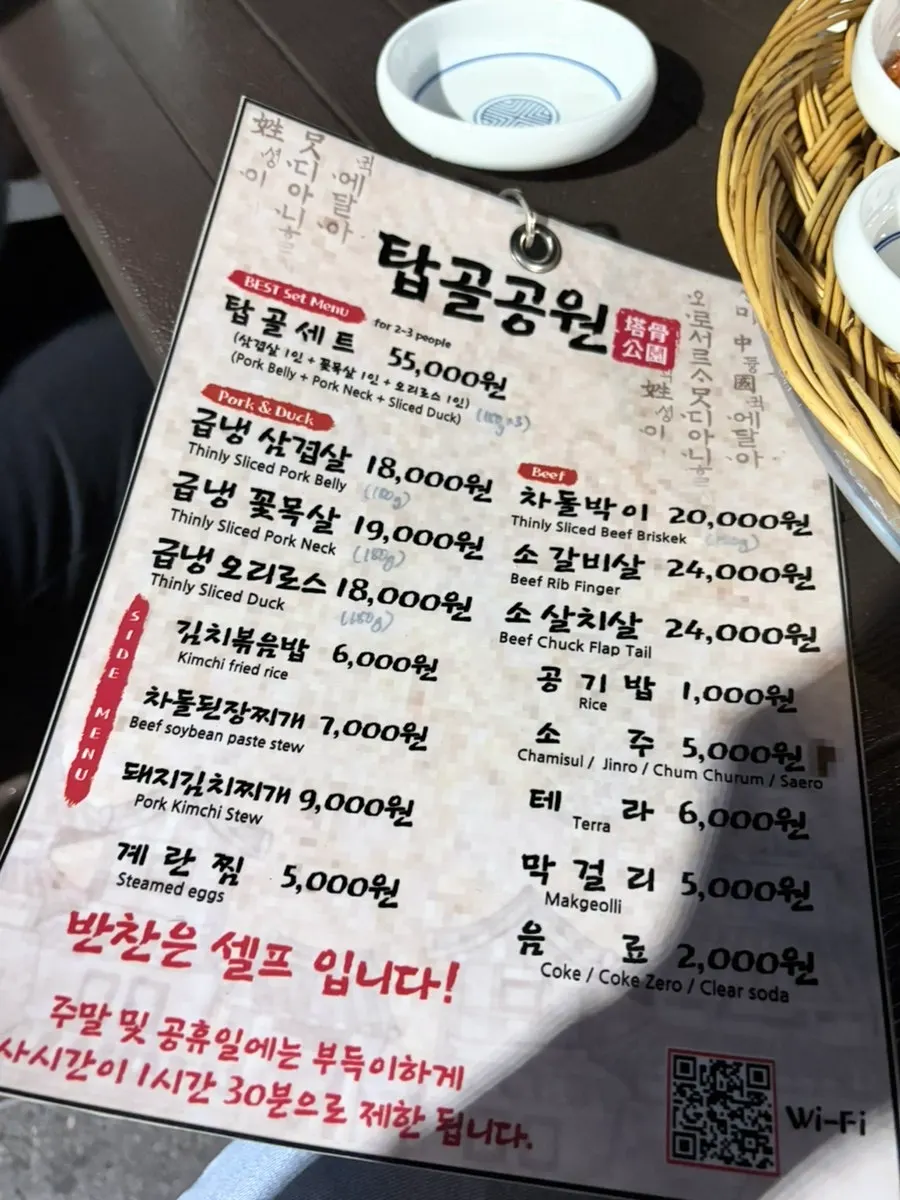 탑골공원
塔骨
公園
BEST Set Menu
탑골세트 for 2-3 people 55,000원
(삼겹살 1인 + 꽃목살 1인 + 오리로스 1인)
(Pork Belly + Pork Neck + Sliced Duck)
Pork & Duck
급냉 삼겹살 18,000원
Thinly Sliced Pork Belly
급냉 꽃목살 19,000원
Thinly Sliced Pork Neck
급냉 오리로스 18,000원
Thinly Sliced Duck
SIDE MENU
김치볶음밥 6,000원
Kimchi fried rice
차돌된장찌개 7,000원
Beef soybean paste stew
돼지김치찌개 9,000원
Pork Kimchi Stew
계란찜 5,000원
Steamed eggs
Beef
차돌박이 20,000원
Thinly Sliced Beef Briskek
소 갈비살 24,000원
Beef Rib Finger
소 살치살 24,000원
Beef Chuck Flap Tail
공기밥 1,000원
Rice
소주 5,000원
Chamisul / Jinro / Chum Churum / Saero
테라 6,000원
Terra
막걸리 5,000원
Makgeolli
음료 2,000원
Coke / Coke Zero / Clear soda
반찬은 셀프 입니다!
주말 및 공휴일에는 부득이하게
사시간이 1시간 30분으로 제한 됩니다.
Wi-Fi